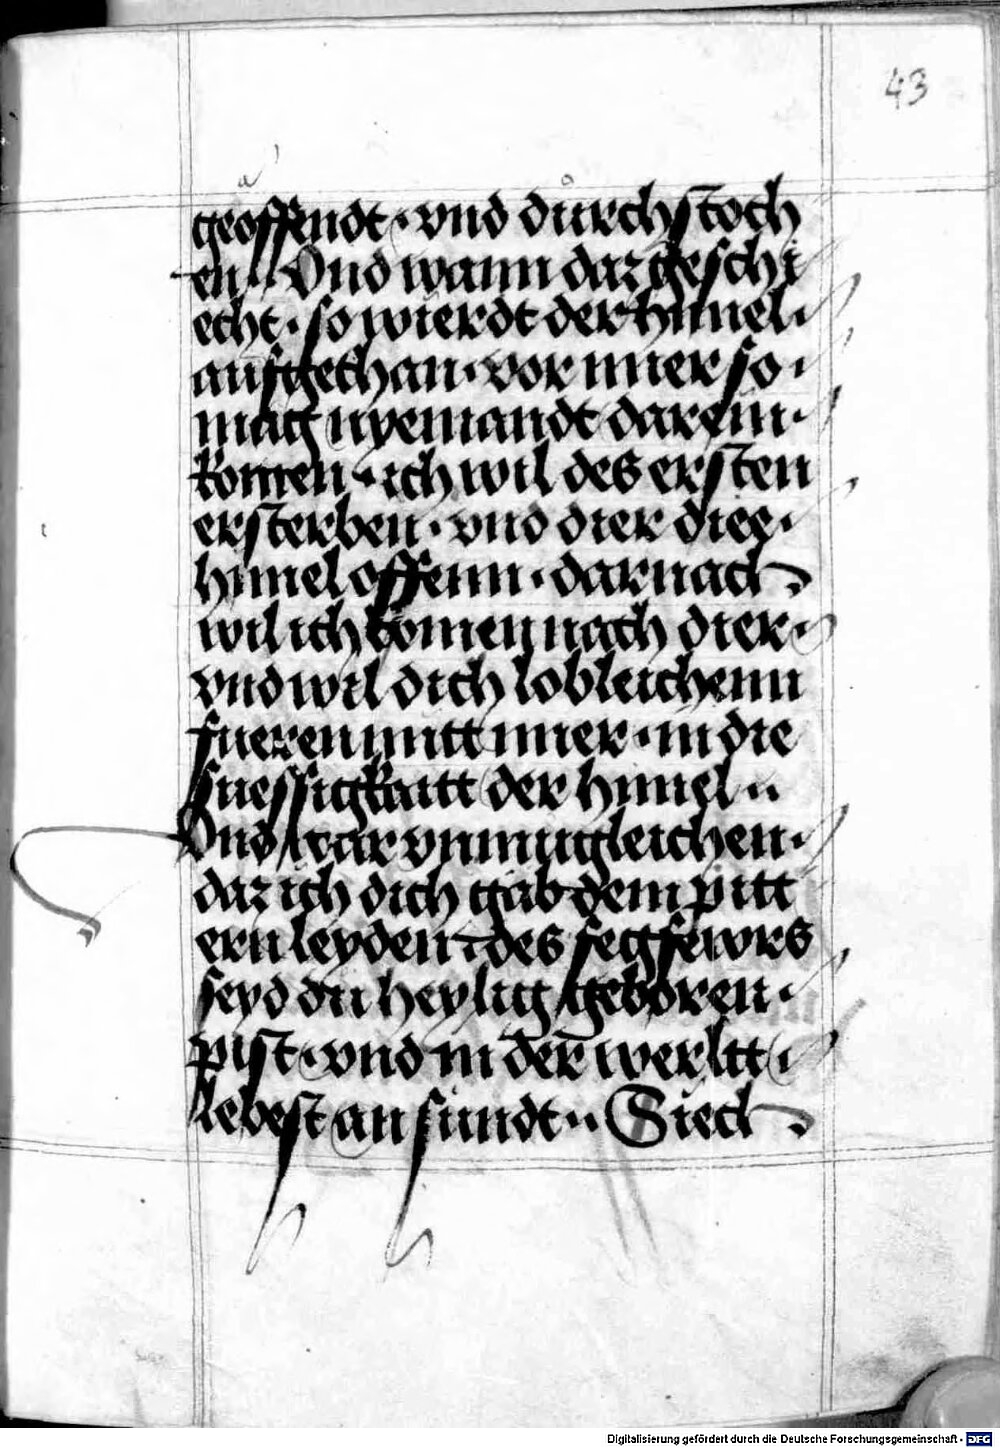 43
geöffendt · vnd důrchstoch
en Vnd wann daz geschi
echt · so wierdt der himel ·
aufgethan · vor mier so ·
mag nyemandt darein ·
komen · ich wil des ersten
ersterben · vnd dier die ·
himel offenn · darnach
wil ich komen nach dier ·
vnd wil dich lobleichenn
fueren mitt mier · in die
suessigkaitt der himel ··
Vnd war vnmugleichen ·
daz ich dich gab dem pitt
ern leyden · des fegfewrs
seyd du heylig geboren ·
pist · vnd in der werltt ·
lebest an sundt ·· Siech
Digitalisierung gefördert durch die Deutsche Forschungsgemeinschaft - DFG